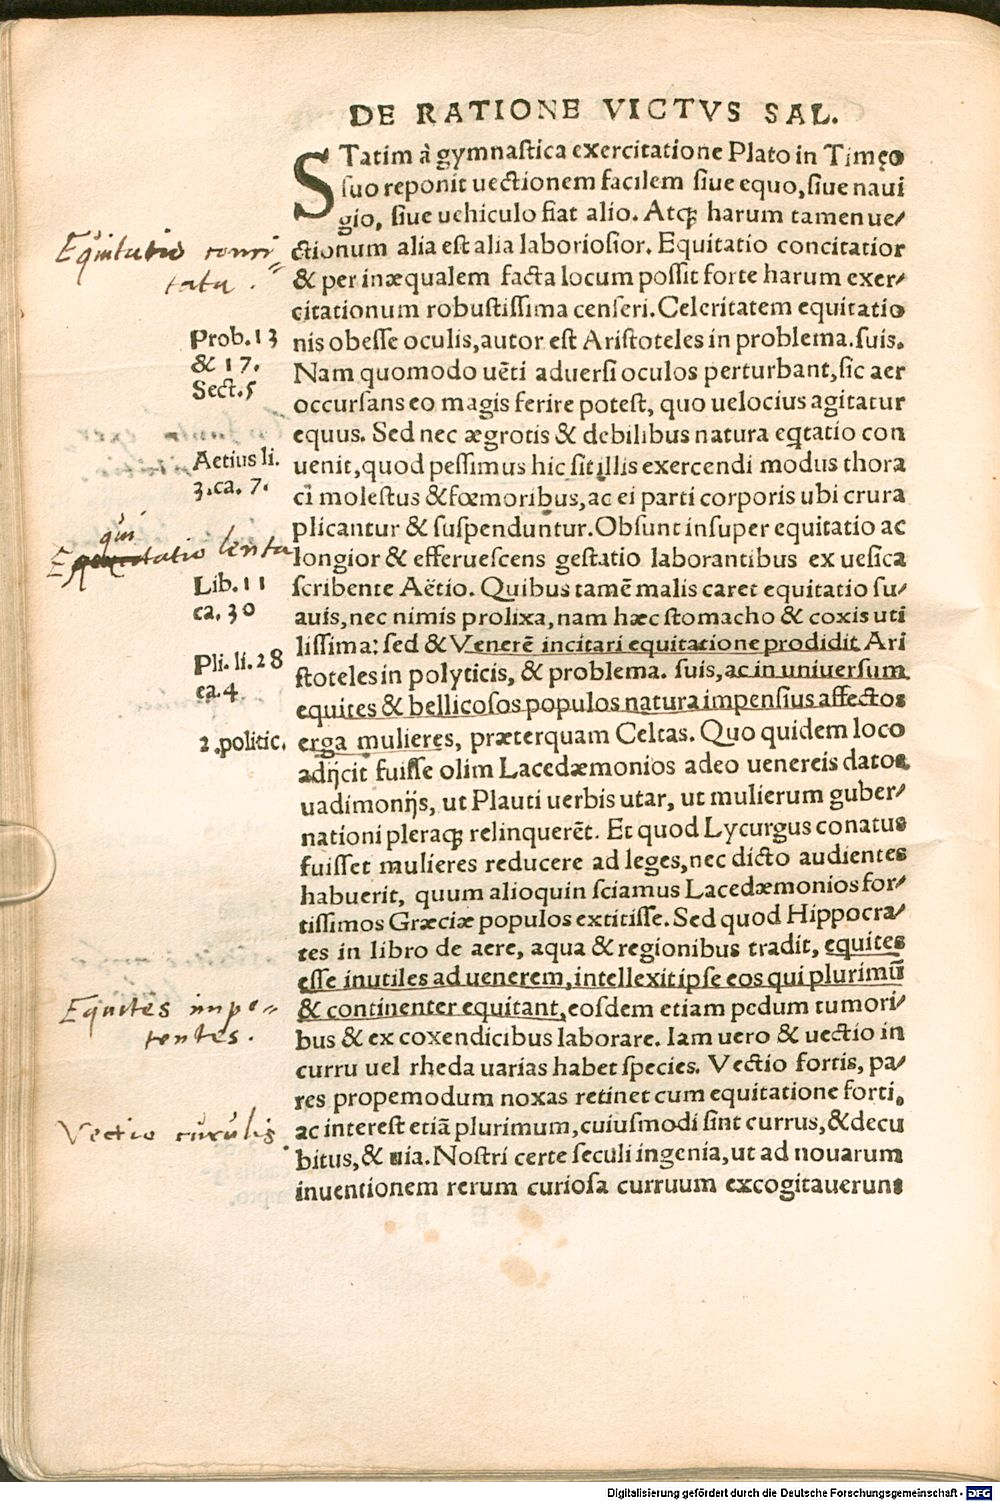 DE RATIONE VICTVS SAL.
STatim à gymnastica exercitatione Plato in Timęo
suo reponit uectionem facilem siue equo, siue naui
gio, siue uehiculo fiat alio. Atq; harum tamen ue/
Equitatio conci=
tata.
ctionum alia est alia laboriosior. Equitatio concitatior
& per inæqualem facta locum possit forte harum exer/
citationum robustissima censeri. Celeritatem equitatio
Prob. 13
& 17.
Sect. 5
nis obesse oculis, autor est Aristoteles in problema. suis.
Nam quomodo uẽti aduersi oculos perturbant, sic aer
occursans eo magis ferire potest, quo uelocius agitatur
equus. Sed nec ægrotis & debilibus natura eq̃tatio con
Aetius li.
3. ca. 7.
uenit, quod pessimus hic sit illis exercendi modus thora
ci molestus & fœmoribus, ac ei parti corporis ubi crura
plicantur & suspenduntur. Obsunt insuper equitatio ac
qui
Equitatio lenta
longior & efferuescens gestatio laborantibus ex uesica
Lib. 11
ca. 30
scribente Aëtio. Quibus tamẽ malis caret equitatio su/
auis, nec nimis prolixa, nam hæc stomacho & coxis uti
lissima: sed & Venerẽ incitari equitatione prodidit Ari
Pli. li. 28
ca. 4
stoteles in polyticis, & problema. suis, ac in uniuersum
equites & bellicosos populos natura impensius affectos
2. politic.
erga mulieres, præterquam Celtas. Quo quidem loco
adijcit fuisse olim Lacedæmonios adeo uenereis datos
uadimonijs, ut Plauti uerbis utar, ut mulierum guber/
nationi pleraq; relinquerẽt. Et quod Lycurgus conatus
fuisset mulieres reducere ad leges, nec dicto audientes
habuerit, quum alioquin sciamus Lacedæmonios for/
tissimos Græciæ populos extitisse. Sed quod Hippocra/
tes in libro de aere, aqua & regionibus tradit, equites
esse inutiles ad uenerem, intellexit ipse eos qui plurimũ
Equites impo=
tentes.
& continenter equitant, eosdem etiam pedum tumori/
bus & ex coxendicibus laborare. Iam uero & uectio in
curru uel rheda uarias habet species. Vectio fortis, pa/
res propemodum noxas retinet cum equitatione forti,
Vectio curulis.
ac interest etiã plurimum, cuiusmodi sint currus, & decu
bitus, & uia. Nostri certe seculi ingenia, ut ad nouarum
inuentionem rerum curiosa curruum excogitauerunt
Digitalisierung gefördert durch die Deutsche Forschungsgemeinschaft - DFG